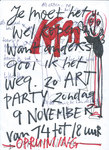 Je moet het
wel kopen
want anders
gooi ik het
weg. zo ART
PARTY zondag
9 NOVEMBER
van 14 tot 18 uur
OPRUIMING